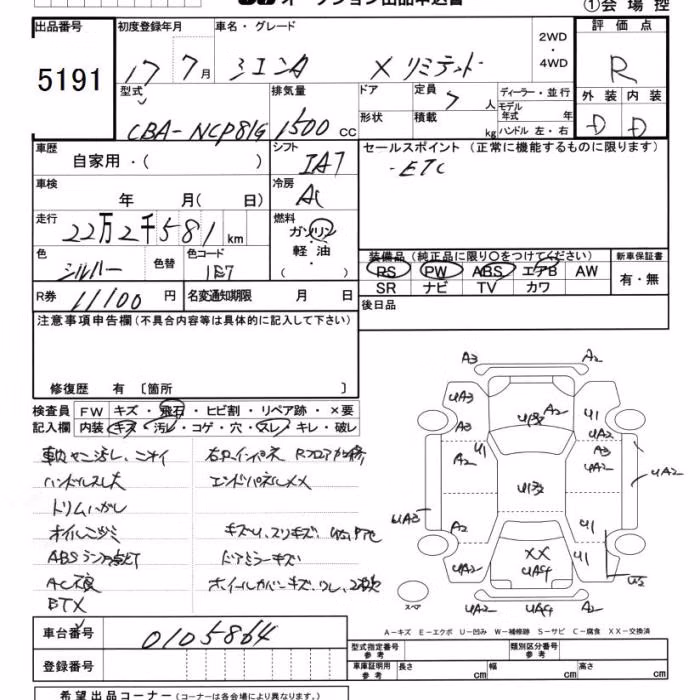 オークション出品申込書
①会場控
出品番号
5191
初度登録年月
17 7月
車名・グレード
シエンタ X リミテッド
2WD
・
4WD
評価点
R
外装 内装
D D
型式
CBA-NCP81G
排気量
1500 cc
ドア
定員
7 人
形状
積載
kg
ディーラー・並行
モデル年式 年
ハンドル 左・右
車歴
自家用・( )
シフト
IAT
セールスポイント (正常に機能するものに限ります)
・ETC
車検
年 月( 日)
冷房
AC
走行
22万2千581 km
燃料
ガソリン
・
軽油
・
( )
色
シルバー
色替
色コード
1E7
装備品 (純正品に限り○をつけてください)
PS PW ABS エアB AW
SR ナビ TV カワ
新車保証書
有・無
R券
11100 円
名変通知期限 月 日
後日品
注意事項申告欄(不具合内容等は具体的に記入して下さい)
修復歴 有 〔箇所 〕
検査員記入欄
FW キズ・飛石・ヒビ割・リペア跡・×要
内装 キズ・汚レ・コゲ・穴・スレ・キレ・破レ
ハンドルスレ大
エンドパネルXX
トリムハガレ
ABSランプ点灯
ドアミラーキズ
AC不良
A3 A2
UA3 A2 U1 UA2
A2 U1 A3 UA2
UA2
UA3 A2 U1
UA2 XX UA4 U1
U2
UA2 UA4 UA2
スペア
A-キズ E-エクボ U-凹み W-補修跡 S-サビ C-腐食 XX-交換済
車台番号
0105864
登録番号
型式指定番号 参考
類別区分番号 参考
車庫証明用 参考
長さ cm 幅 cm 高さ cm
希望出品コーナー (コーナーは各会場により異なります。)